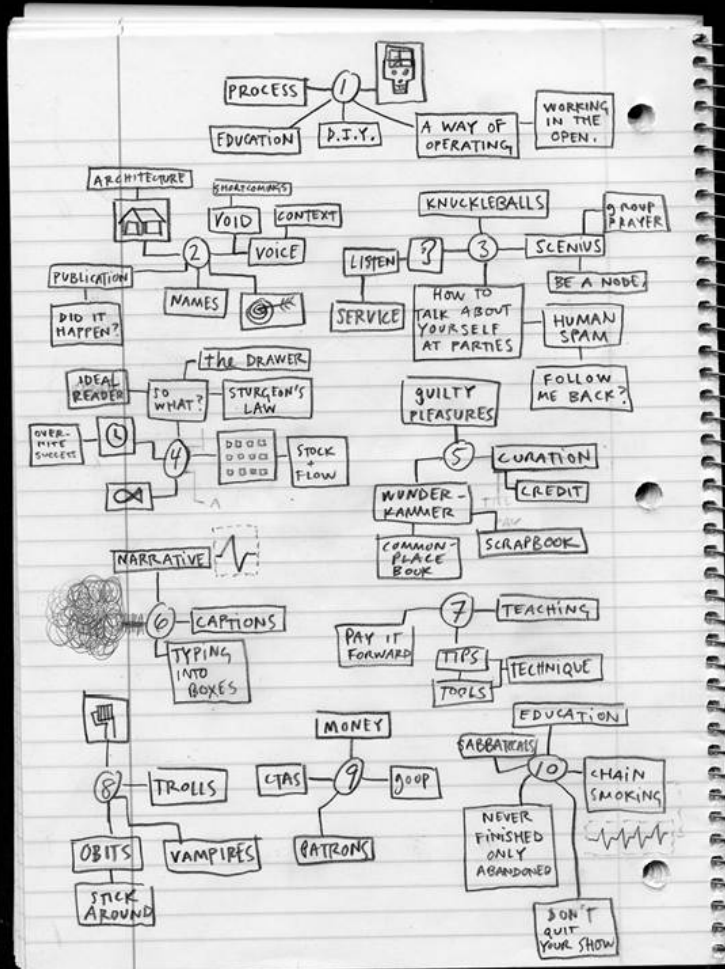 1
PROCESS
EDUCATION
D.I.Y.
A WAY OF
OPERATING
WORKING
IN THE
OPEN.
2
ARCHITECTURE
SHORTCOMINGS
VOID
CONTEXT
VOICE
PUBLICATION
DID IT
HAPPEN?
NAMES
3
KNUCKLEBALLS
GROUP
PRAYER
SCENIUS
BE A NODE.
?
LISTEN
SERVICE
HOW TO
TALK ABOUT
YOURSELF
AT PARTIES
HUMAN
SPAM
FOLLOW
ME BACK?
4
the DRAWER
IDEAL
READER
SO
WHAT?
STURGEON'S
LAW
OVER-
NITE
SUCCESS
STOCK
+
FLOW
5
GUILTY
PLEASURES
CURATION
CREDIT
WUNDER-
KAMMER
COMMON-
PLACE
BOOK
SCRAPBOOK
6
NARRATIVE
CAPTIONS
TYPING
INTO
BOXES
7
TEACHING
PAY IT
FORWARD
TIPS
TOOLS
TECHNIQUE
8
TROLLS
OBITS
VAMPIRES
STICK
AROUND
9
MONEY
CTAS
GOOP
PATRONS
10
EDUCATION
SABBATICALS
CHAIN
SMOKING
NEVER
FINISHED
ONLY
ABANDONED
DON'T
QUIT
YOUR SHOW